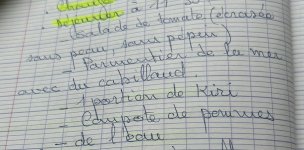 Déjeuner à 11
Salade de tomate (écrasée
sans peau, sans pepin)
- Parmentier de la mer
avec du cabillaud.
- 1 portion de Kiri
- Compote de pommes
- de l'eau